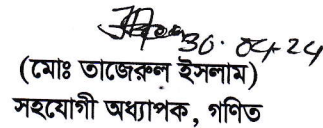 30.04.24
(মোঃ তাজেরুল ইসলাম)
সহযোগী অধ্যাপক, গণিত